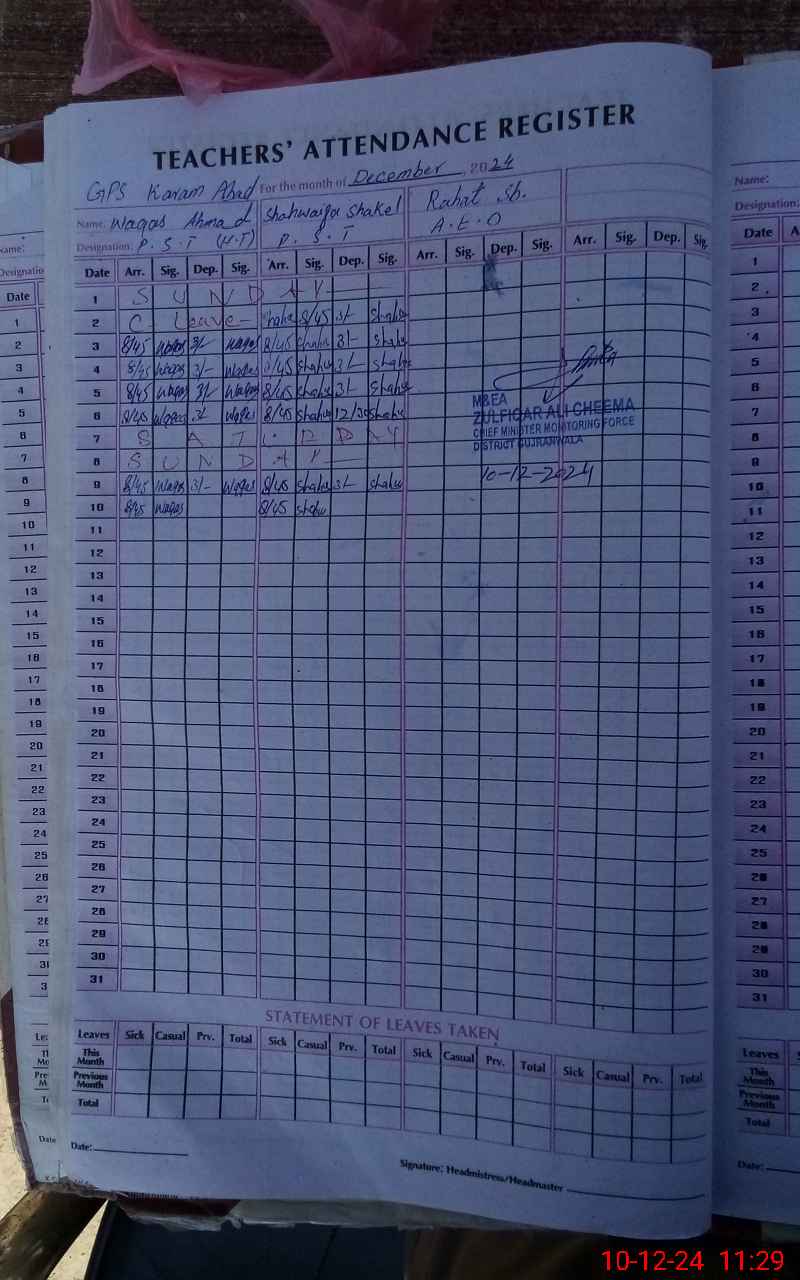 TEACHERS' ATTENDANCE REGISTER
GPS Karam Abad For the month of December, 2024
Name: Waqas Ahmad Shahwaiza Shakel Rahat Sb.
Designation: P.S.T (H.T) P.S.T A.E.O
Date Arr. Sig. Dep. Sig. Arr. Sig. Dep. Sig. Arr. Sig. Dep. Sig. Arr. Sig. Dep. Sig.
1 S U N D A Y
2 C- Leave- 8/45 3/-
3 8/45 Waqas 3/- Waqas 8/45 3/-
4 8/45 Waqas 3/- Waqas 8/45 3/-
5 8/45 Waqas 3/- Waqas 8/45 3/-
6 8/45 Waqas 3/- Waqas 8/45 12/30
7 S A T U R D A Y
8 S U N D A Y
9 8/45 Waqas 3/- Waqas 8/45 3/-
10 8/45 Waqas 8/45
M&EA
ZULFIQAR ALI CHEEMA
CHIEF MINISTER MONITORING FORCE
DISTRICT GUJRANWALA
10-12-2024
11
12
13
14
15
16
17
18
19
20
21
22
23
24
25
26
27
28
29
30
31
STATEMENT OF LEAVES TAKEN
Leaves Sick Casual Prv. Total Sick Casual Prv. Total Sick Casual Prv. Total Sick Casual Prv. Total
This Month
Previous Month
Total
Date:
Signature: Headmistress/Headmaster
Name:
Designation:
Date
1
2
3
4
5
6
7
8
9
10
11
12
13
14
15
16
17
18
19
20
21
22
23
24
25
26
27
28
29
30
31
Leaves
This Month
Previous Month
Total
Date:
10-12-24 11:29